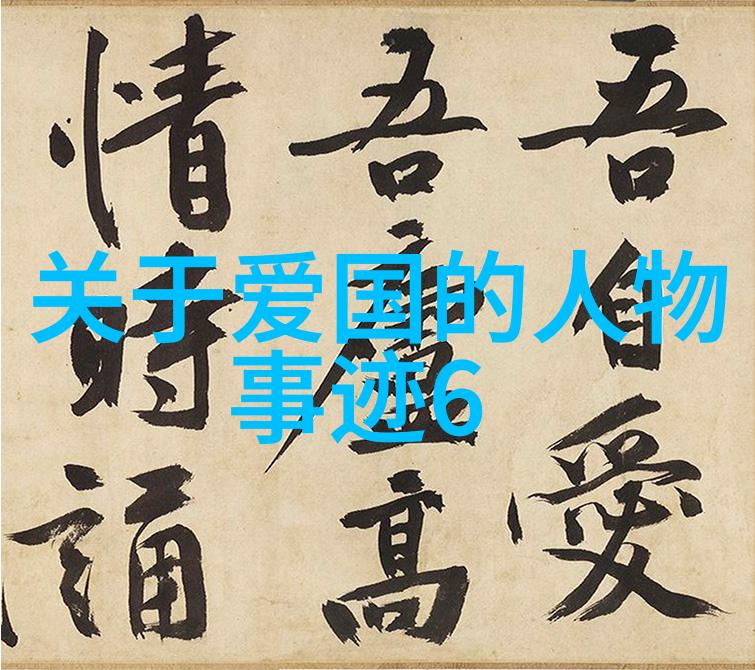 吾自愛
吾廬高
情時誦
关于爱国的人物
事迹6